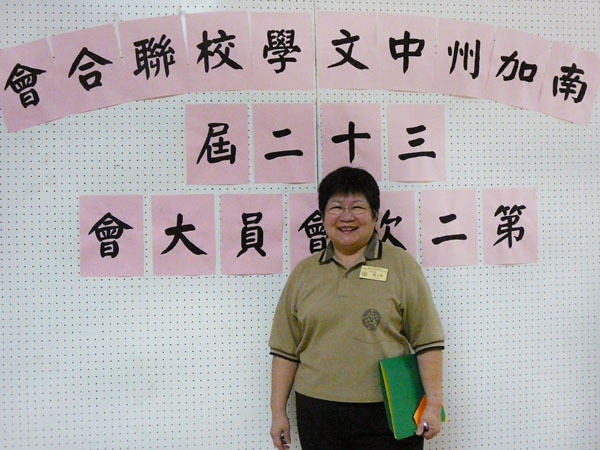 南加州中文學校聯合會
三十二屆
第二次會員大會